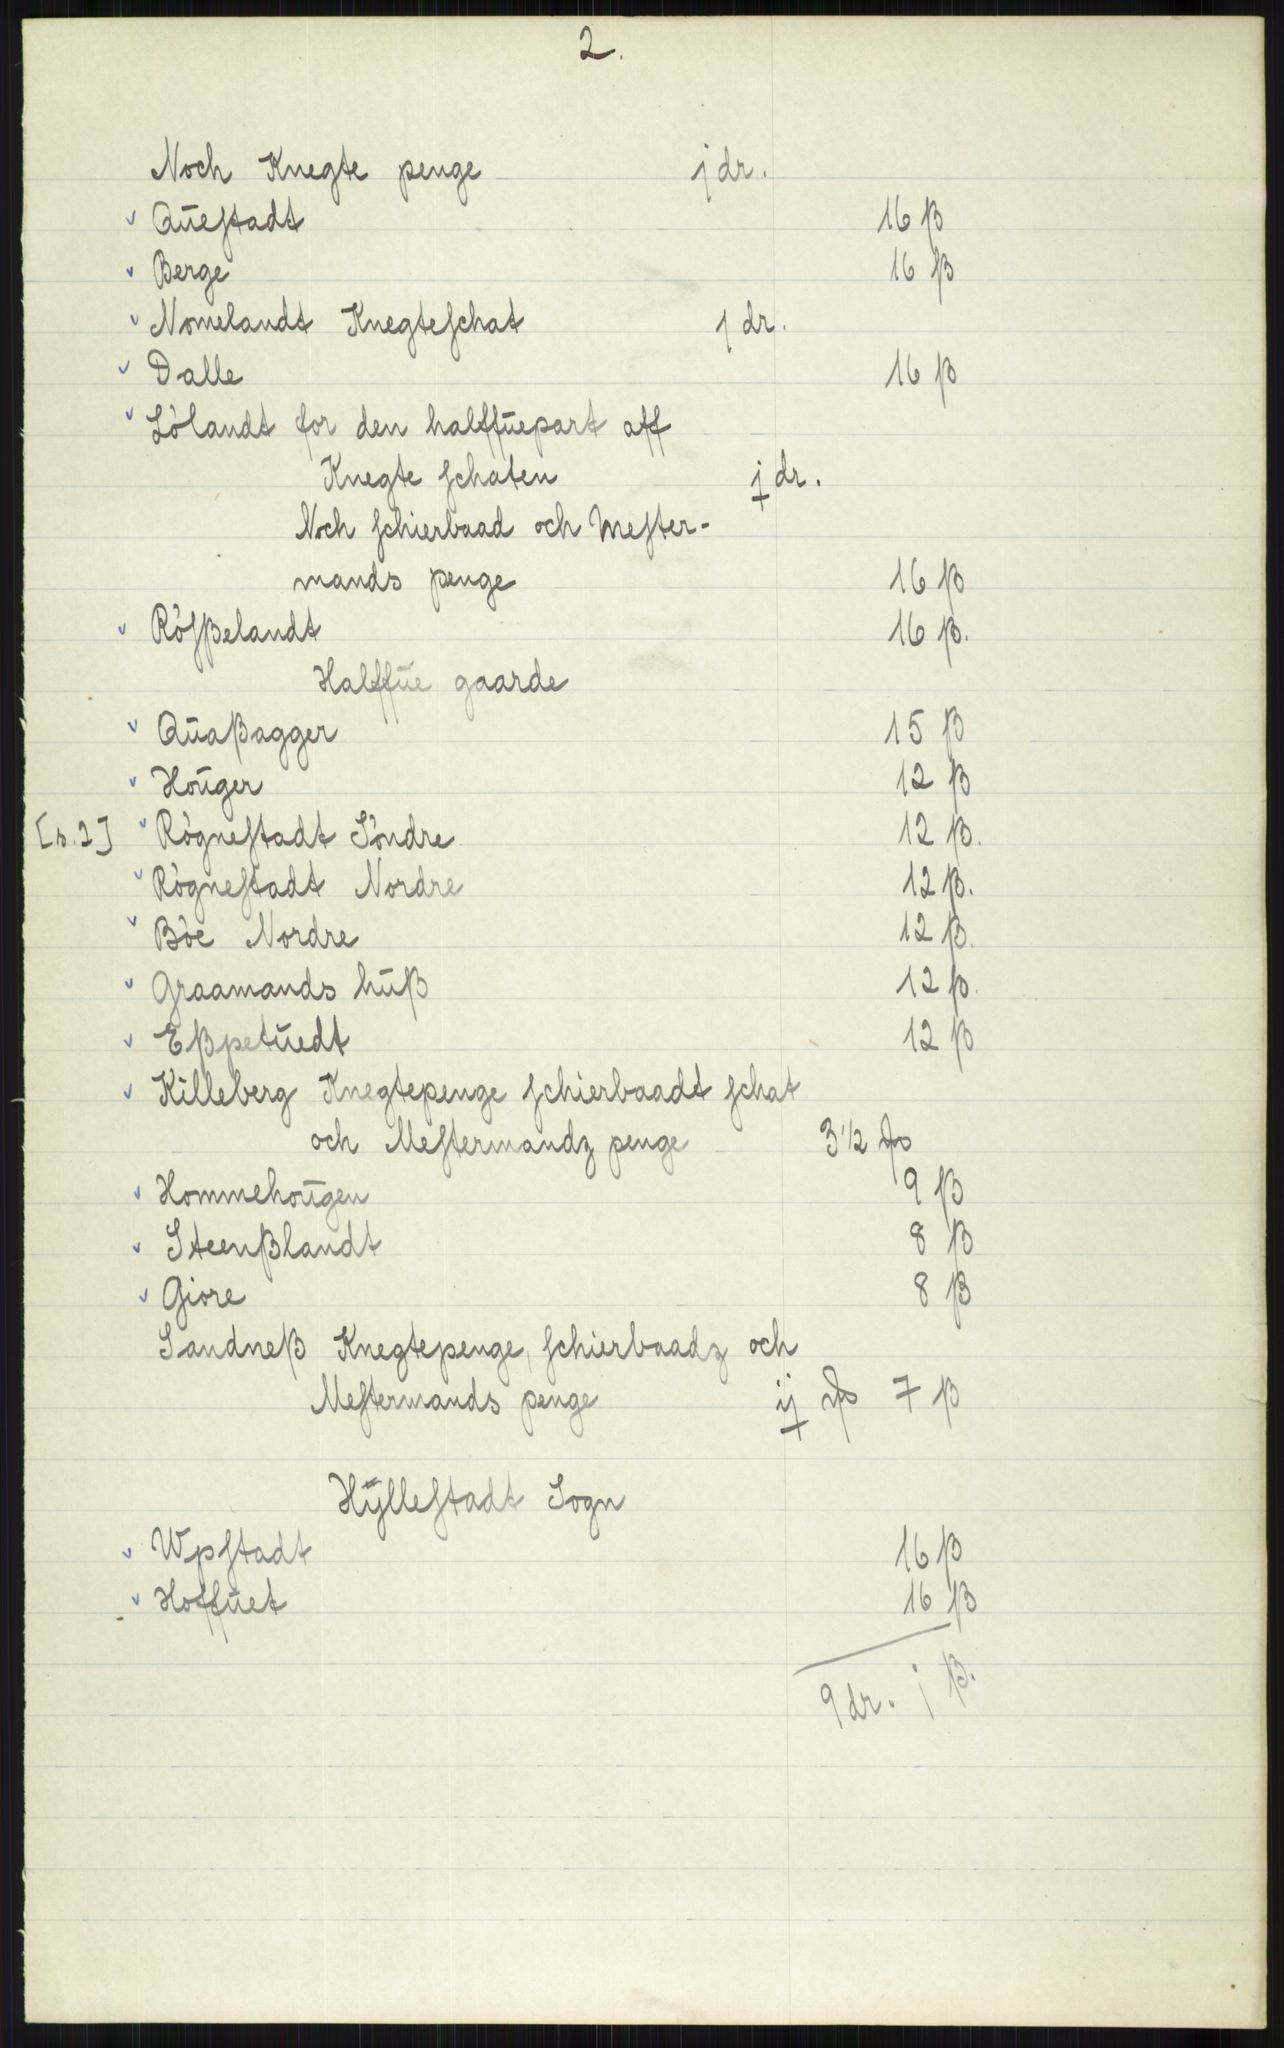 2.
Noch Knegte penge j dr.
v Qūestadt 16 ß
v Berge 16 ß
v Nomelandt Knegteschat j dr.
v Dalle 16 ß
v Lòlandt for den halffūepart aff
Knegte schaten j dr.
Noch schierbaad och Mester-
mands penge 16 ß
v Ròsßelandt 16 ß.
Halffūe gaarde
v Qūaßagger 15 ß
v Hoūger 12 ß
[s. 2] v Rògnestadt Sòndre 12 ß.
v Rògnestadt Nordre 12 ß.
v Bòe Nordre 12 ß.
v Graamands hūß 12 ß.
v Eßpetūedt 12 ß
v Killeberg Knegtepenge schierbaadt schat
och Mestermandz penge 3 1/2
v Hommehoūgen 9 ß
v Steenßlandt 8 ß
v Giore 8 ß
Sandneß Knegtepenge, schierbaadz och
Mestermands penge ij 7 ß
Hÿllestadt Sogn
v Wpstadt 16 ß
v Hoffūet 16 ß
9 dr. j ß.